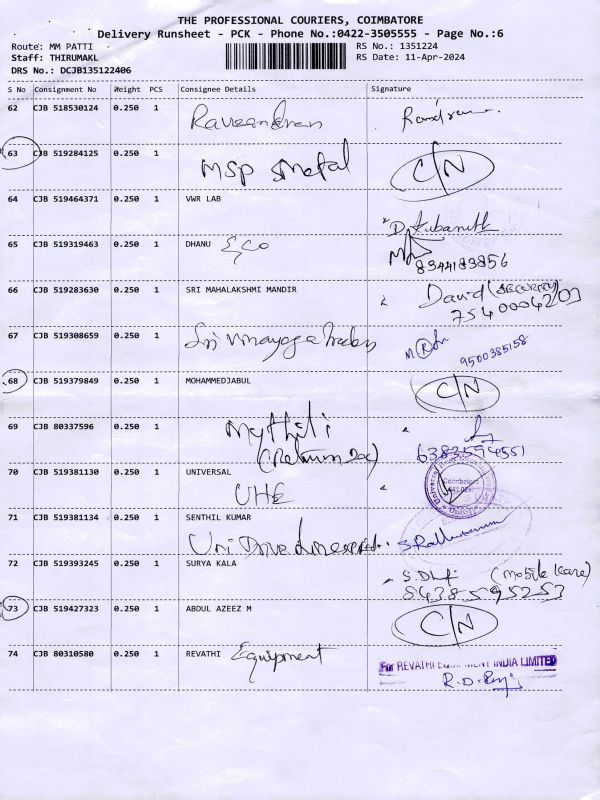 THE PROFESSIONAL COURIERS, COIMBATORE
Delivery Runsheet - PCK - Phone No.:0422-3505555 - Page No.:6
Route: MM PATTI RS No.: 1351224
Staff: THIRUMAKL RS Date: 11-Apr-2024
DRS No.: DCJB135122406
S No Consignment No Weight PCS Consignee Details Signature
62 CJB 518530124 0.250 1 Raveendran
63 CJB 519284125 0.250 1 MSP Metal C/N
64 CJB 519464371 0.250 1 VWR LAB
65 CJB 519319463 0.250 1 DHANU & Co
8344183856
66 CJB 519283630 0.250 1 SRI MAHALAKSHMI MANDIR David (SECURITY)
7540004203
67 CJB 519308659 0.250 1 Sri Vinayaga Traders 9500385158
68 CJB 519379849 0.250 1 MOHAMMEDJABUL C/N
69 CJB 80337596 0.250 1 Mythili
(Return Doc) 6383594551
70 CJB 519381130 0.250 1 UNIVERSAL
UHE Coimbatore
71 CJB 519381134 0.250 1 SENTHIL KUMAR
Uni Drive
72 CJB 519393245 0.250 1 SURYA KALA (Mobile Care)
8438595253
73 CJB 519427323 0.250 1 ABDUL AZEEZ M C/N
74 CJB 80310580 0.250 1 REVATHI Equipment For REVATHI EQUIPMENT INDIA LIMITED